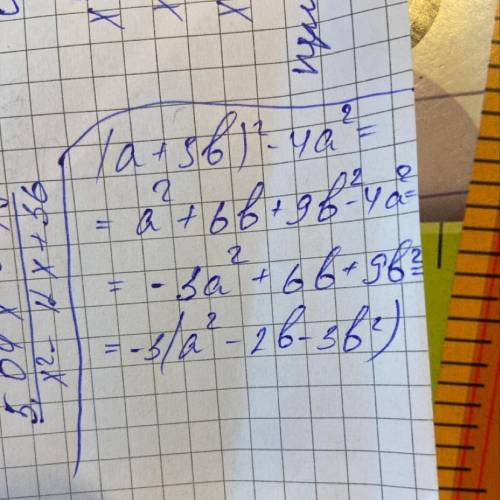 (a + 3b)² - 4a² =
= a² + 6b + 9b² - 4a² =
= -3a² + 6b + 9b² =
= -3(a² - 2b - 3b²)